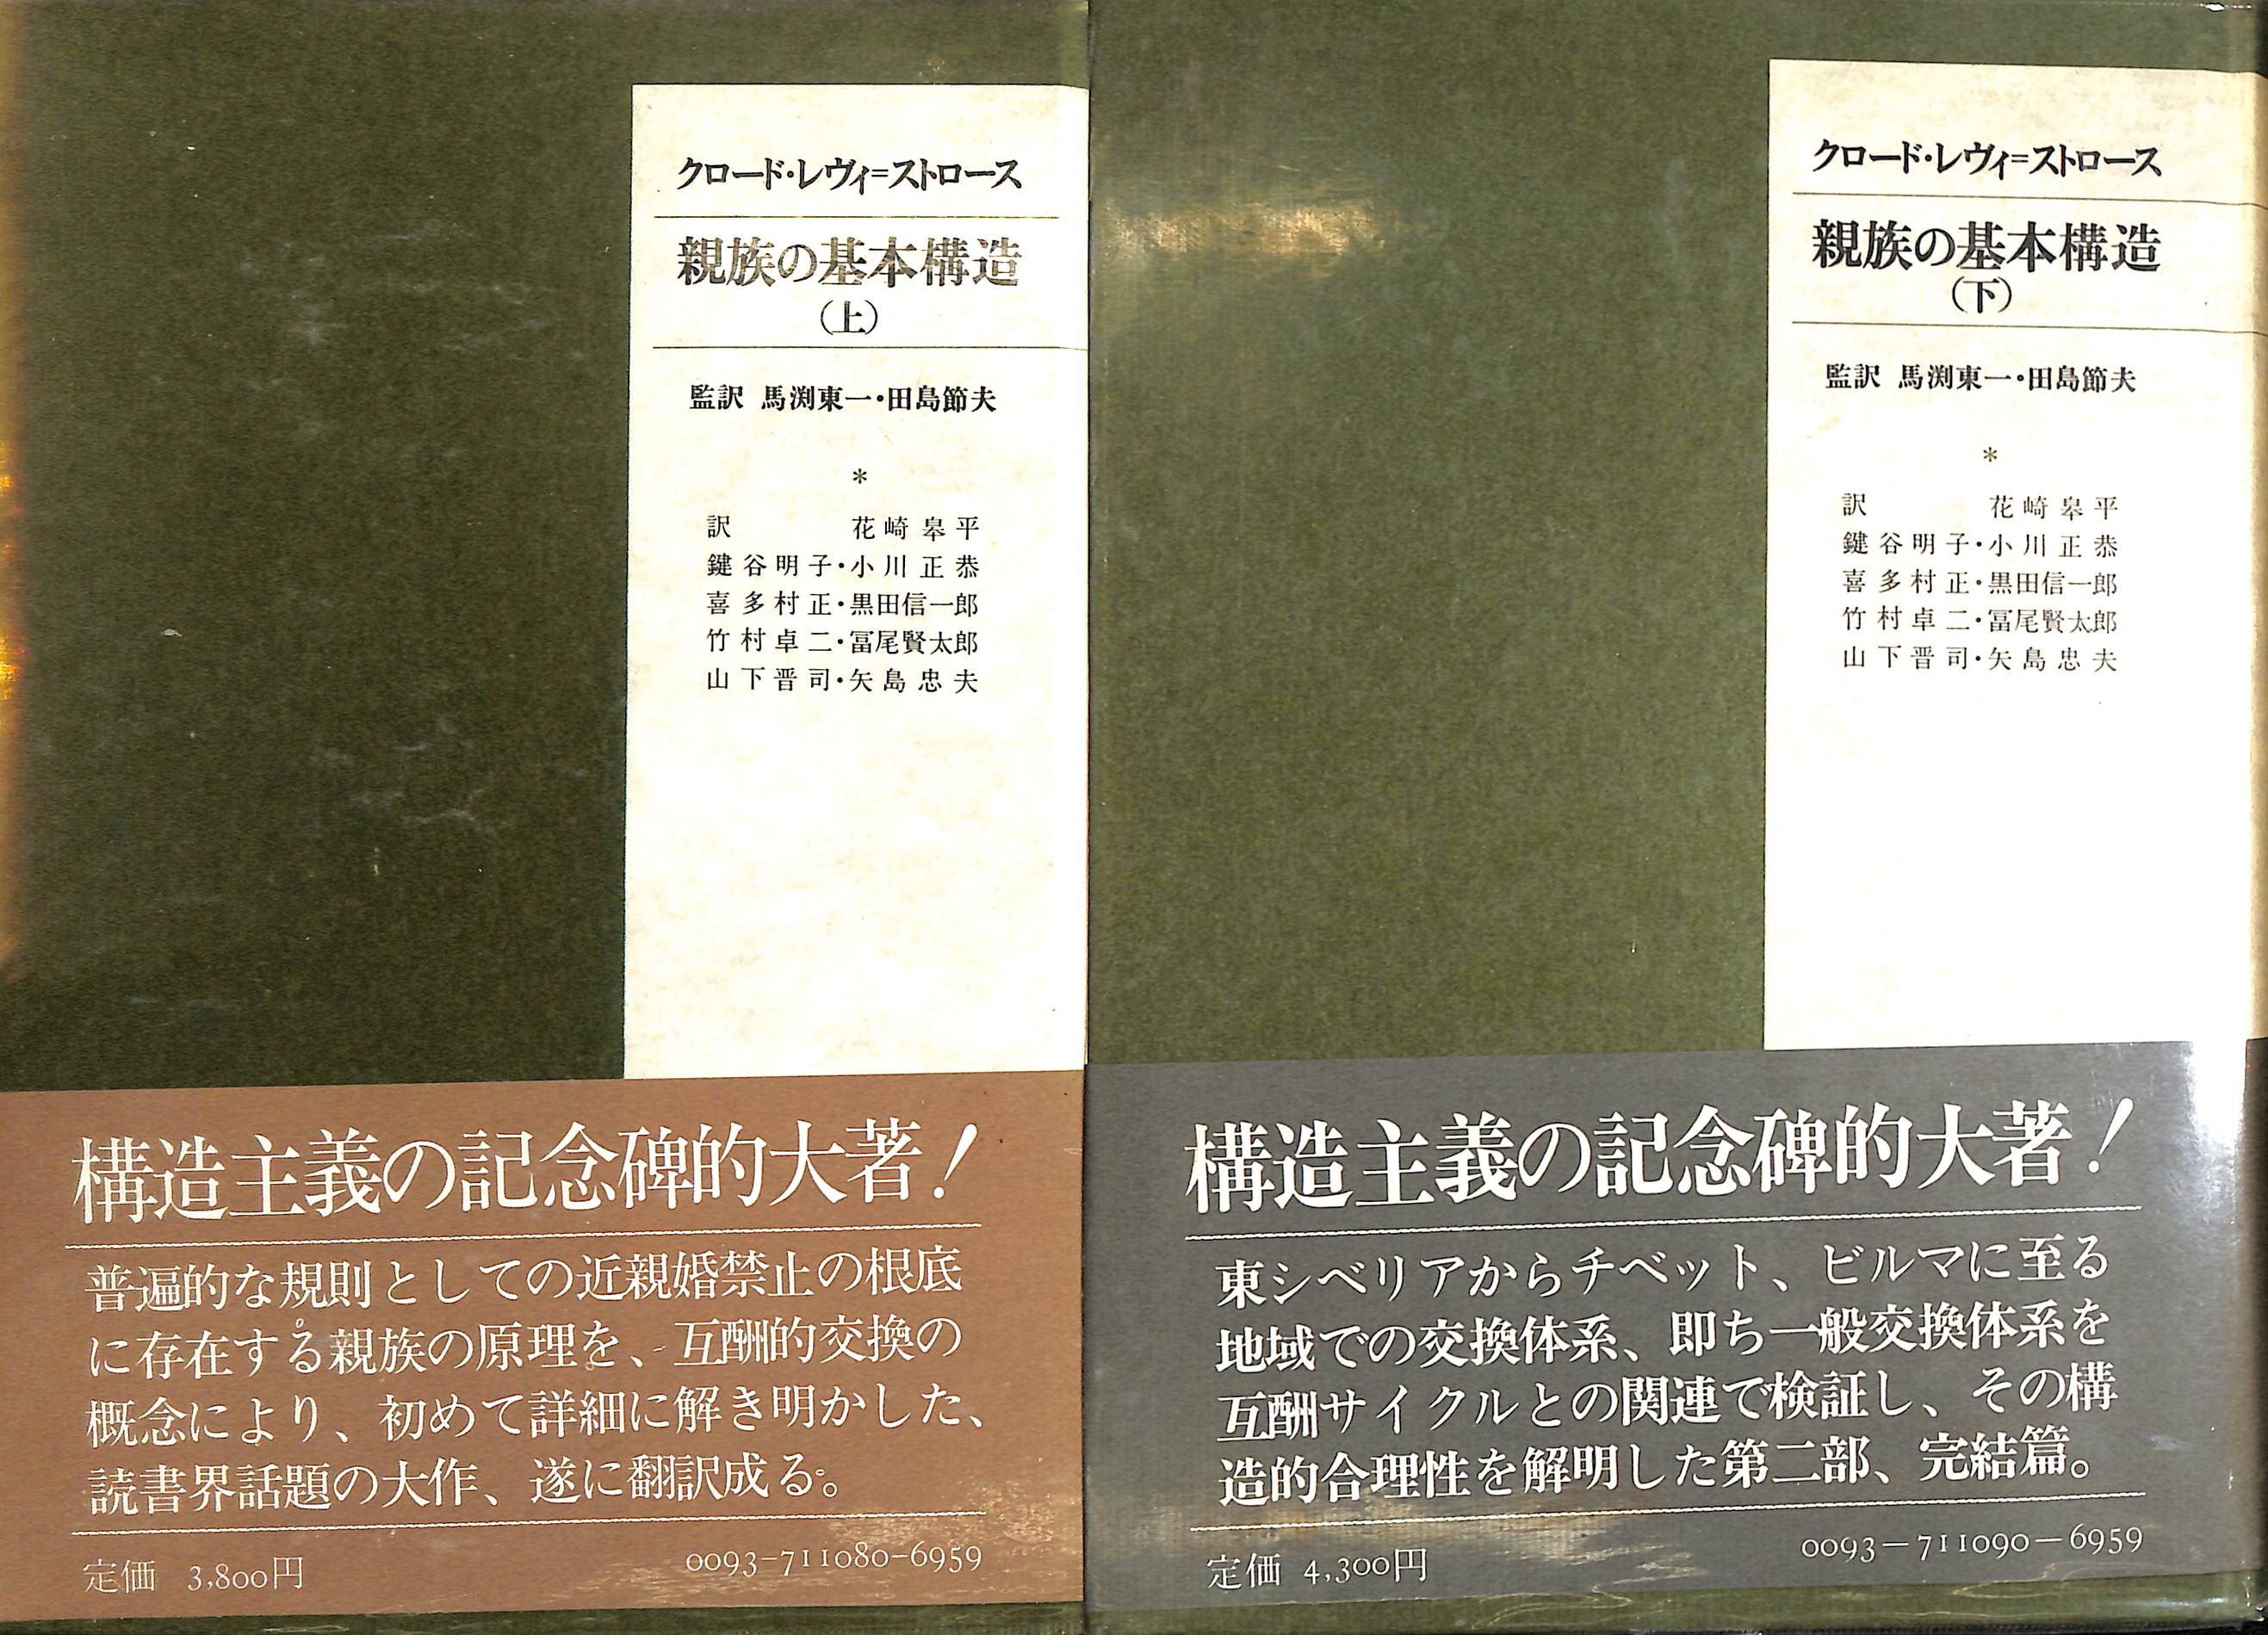 クロード・レヴィ=ストロース
親族の基本構造
(上)
監訳 馬渕東一・田島節夫
*
訳 花崎皋平
鍵谷明子・小川正恭
喜多村正・黒田信一郎
竹村卓二・冨尾賢太郎
山下晋司・矢島忠夫
構造主義の記念碑的大著!
普遍的な規則としての近親婚禁止の根底
に存在する親族の原理を、互酬的交換の
概念により、初めて詳細に解き明かした、
読書界話題の大作、遂に翻訳成る。
定価 3,800円
0093-711080-6959
クロード・レヴィ=ストロース
親族の基本構造
(下)
監訳 馬渕東一・田島節夫
*
訳 花崎皋平
鍵谷明子・小川正恭
喜多村正・黒田信一郎
竹村卓二・冨尾賢太郎
山下晋司・矢島忠夫
構造主義の記念碑的大著!
東シベリアからチベット、ビルマに至る
地域での交換体系、即ち一般交換体系を
互酬サイクルとの関連で検証し、その構
造的合理性を解明した第二部、完結篇。
定価 4,300円
0093-711090-6959